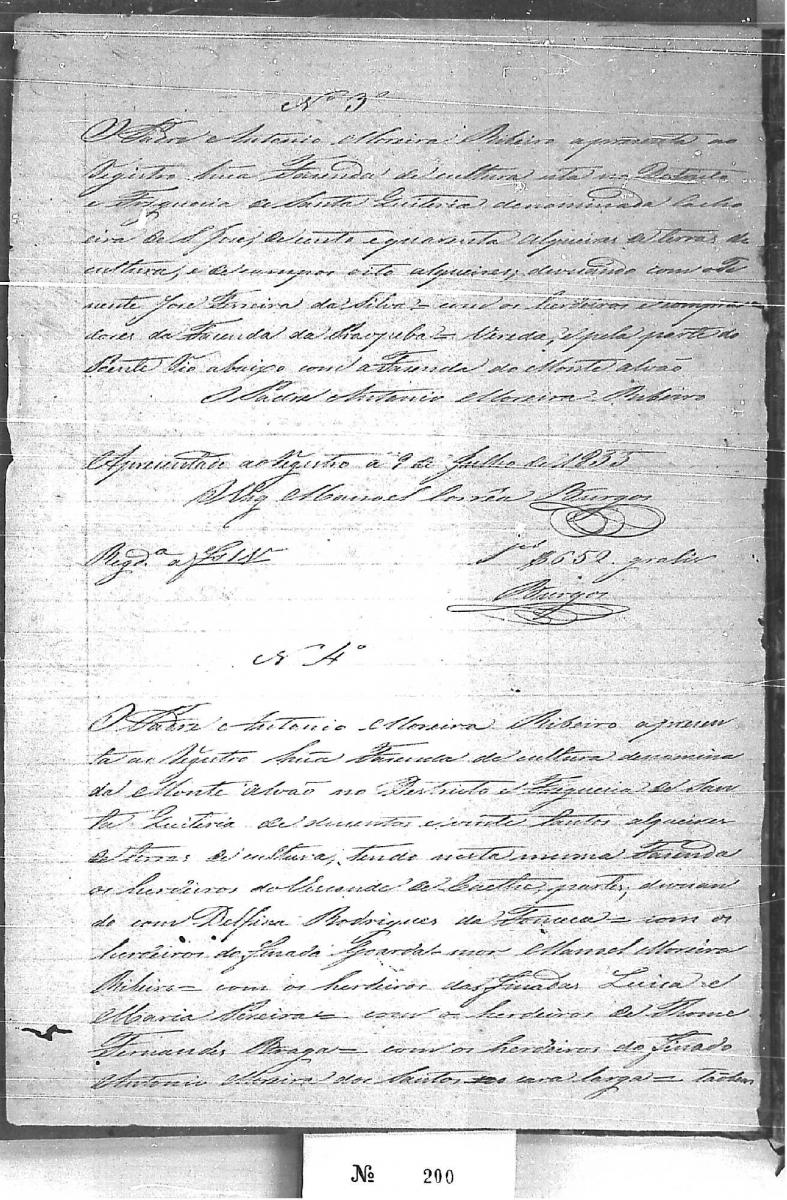 Nº 3º
O Padre Antonio Moreira Ribeiro apresenta ao
Registro hũa Fazenda de cultura sita no Destricto
e Freguezia de Santa Quiteria denominada Cacho
eira de S. José, de cento e quarenta alqueires de terras de
cultura, e de campos oito alqueires, devisando com o Te
nente José Ferreira da Silva = com os herdeiros e compra
dores da Fazenda da = Vereda, e pela parte do
Poente Rio abaixo com a Fazenda do Monte alvão
O Padre Antonio Moreira Ribeiro
Apresentado ao Registro a 9 de Julho de 1855
O Vigº Manoel Corrêa Burgos
Regdª a
3652 gratis
Burgos
Nº 4º
O Padre Antonio Moreira Ribeiro apresen
ta ao Registro hũa Fazenda de cultura denomina
da Monte alvão no Destricto e Freguezia de San
ta Quiteria de duzentos e vinte tantos alqueires
de terras de cultura, tendo nesta mesma Fazenda
os herdeiros do Visconde de Caethe, partes, devisan
do com Delfina Rodrigues da Fonseca = com os
herdeiros do Finado Goarda-mor Manoel Moreira
Ribeiro = com os herdeiros das Finadas Luiza e
Maria Pereira = com os herdeiros de Thome
Fernandes Braga = com os herdeiros do Finado
Antonio Moreira dos Santos = cara larga = tãobem
Nº 200